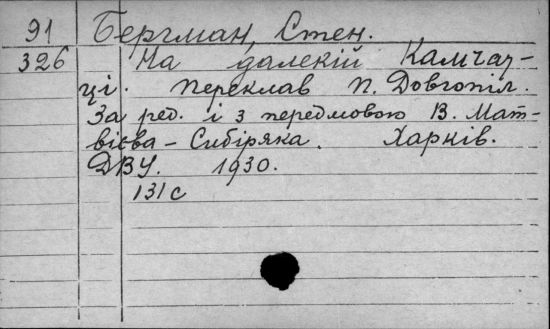 91 Бергман, Стен.
326 На далекій Камчат-
ці. Переклав П. Довгопіл.
За ред. і з передмовою В. Мат-
вієва-Сибіряка. Харків.
ДВУ. 1930.
131 с